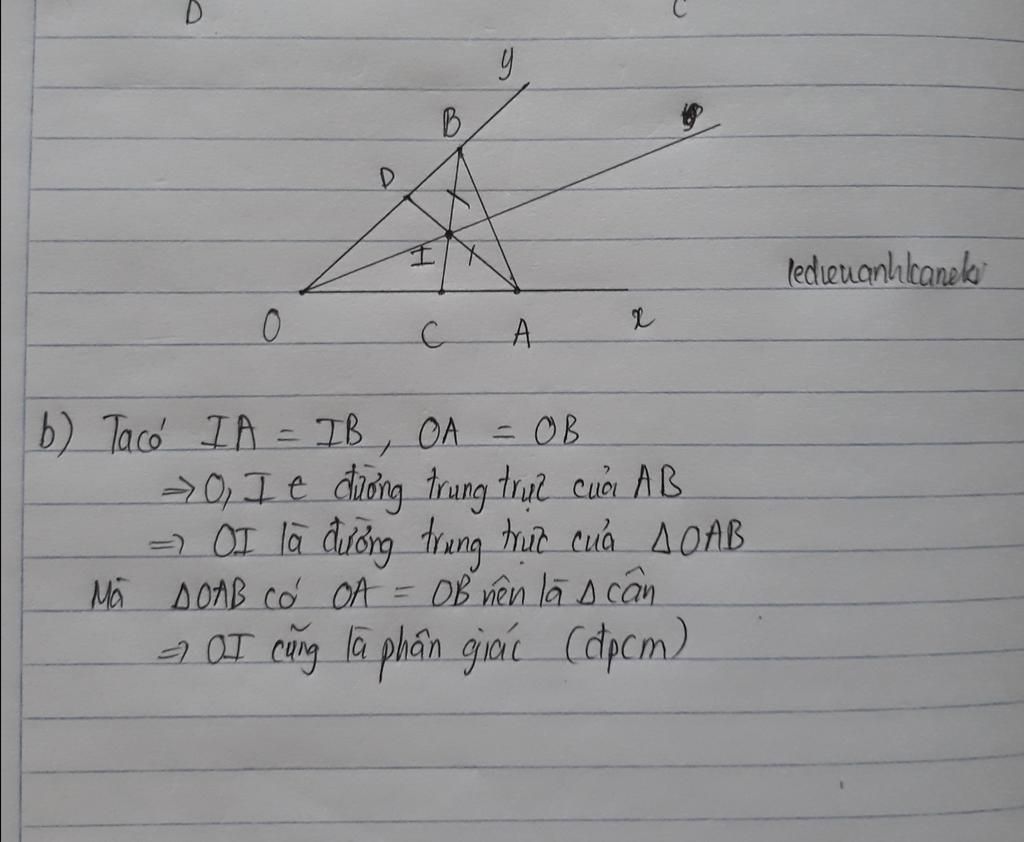 D C
y
B
D
I
O C A x
ledieuanhkaneki
b) Ta có IA = IB, OA = OB
=> O, I ∈ đường trung trực của AB
=> OI là đường trung trực của ΔOAB
Mà ΔOAB có OA = OB nên là Δ cân
=> OI cũng là phân giác (đpcm)